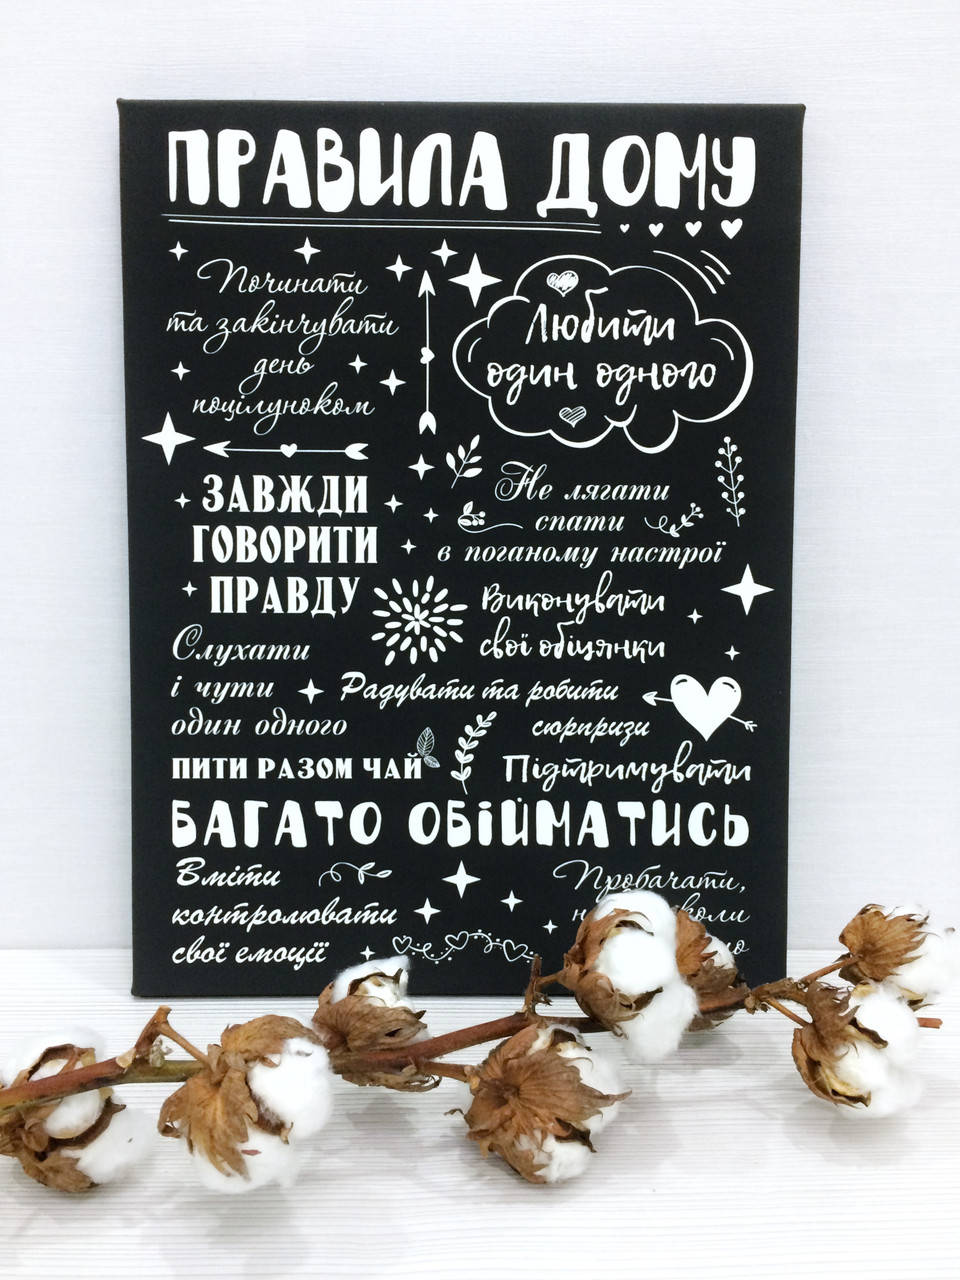 ПРАВИЛА ДОМУ
Починати
та закінчувати
день
поцілунком
Любити
один одного
ЗАВЖДИ
ГОВОРИТИ
ПРАВДУ
Не лягати
спати
в поганому настрої
Виконувати
свої обіцянки
Слухати
і чути
один одного
Радувати та робити
сюрпризи
ПИТИ РАЗОМ ЧАЙ
Підтримувати
БАГАТО ОБІЙМАТИСЬ
Вміти
контролювати
свої емоції
Пробачати,
коли